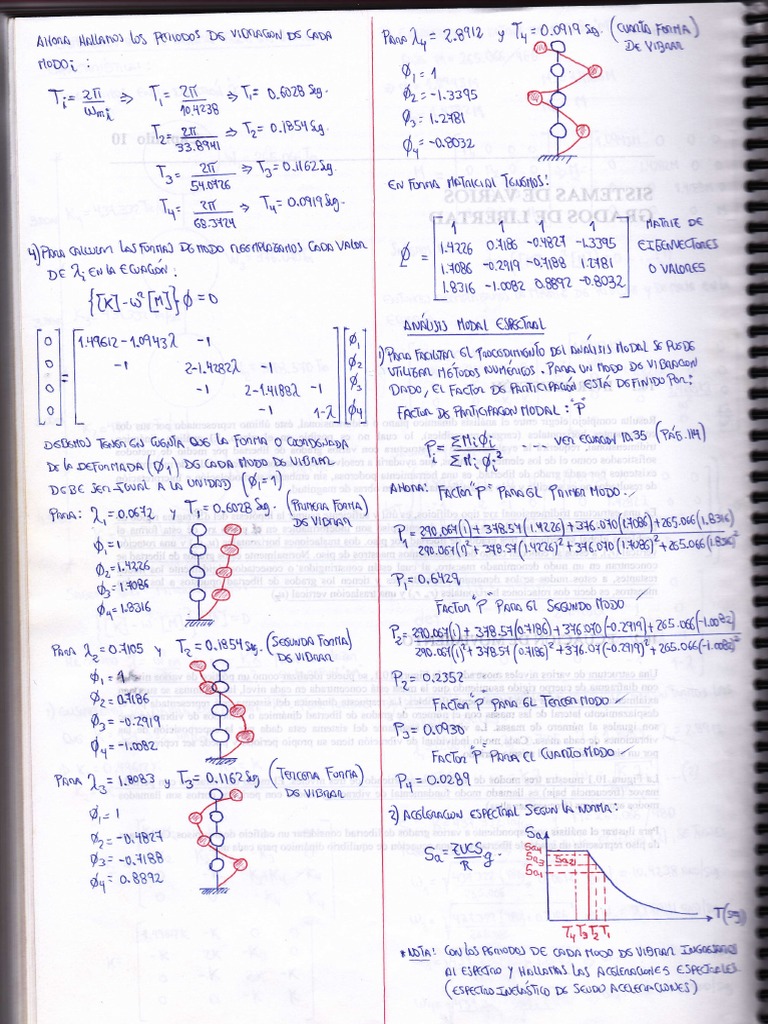 AHORA HALLAMOS LOS PERIODOS DE VIBRACION DE CADA
MODO i :
Ti = 2π/ωmi ⇒ T1 = 2π/10.4238 ⇒ T1 = 0.6028 Seg.
T2 = 2π/33.8941 ⇒ T2 = 0.1854 Seg.
T3 = 2π/54.0726 ⇒ T3 = 0.1162 Seg.
T4 = 2π/68.3724 ⇒ T4 = 0.0919 Seg.
4) PARA CALCULAR LAS FORMAS DE MODO REEMPLAZAMOS CADA VALOR
DE λi EN LA ECUACIÓN:
{[K]-ω²[M]}φ = 0
0 = 1.49612-1.0943λ -1 φ1
0 -1 2-1.4282λ -1 φ2
0 -1 2-1.4188λ -1 φ3
0 -1 1-λ φ4
DEBEMOS TENER EN CUENTA QUE LA FORMA O COORDENADA
DE LA DEFORMADA (φ1) DE CADA MODO DE VIBRAR
DEBE SER IGUAL A LA UNIDAD (φ1=1)
PARA: λ1=0.0672 Y T1=0.6028 Seg. (PRIMERA FORMA
DE VIBRAR)
φ1=1
φ2=1.4226
φ3=1.7086
φ4=1.8316
PARA λ2=0.7105 Y T2=0.1854 Seg. (SEGUNDA FORMA
DE VIBRAR)
φ1=1
φ2=0.7186
φ3=-0.2919
φ4=-1.0082
PARA λ3=1.8083 Y T3=0.1162 Seg (TERCERA FORMA
DE VIBRAR)
φ1=1
φ2=-0.4827
φ3=-0.7188
φ4=0.8892
PARA λ4=2.8912 Y T4=0.0919 Seg. (CUARTA FORMA
DE VIBRAR)
φ1=1
φ2=-1.3395
φ3=1.2781
φ4=-0.8032
EN FORMA MATRICIAL TENEMOS:
1 1 1 1 MATRIZ DE
φ = 1.4226 0.7186 -0.4827 -1.3395 EIGENVECTORES
1.7086 -0.2919 -0.7188 1.2781 O VALORES
1.8316 -1.0082 0.8892 -0.8032
ANÁLISIS MODAL ESPECTRAL
1) PARA FACILITAR EL PROCEDIMIENTO DEL ANÁLISIS MODAL SE PUEDE
UTILIZAR MÉTODOS NUMÉRICOS. PARA UN MODO DE VIBRACION
DADO, EL FACTOR DE PARTICIPACIÓN ESTÁ DEFINIDO POR:
FACTOR DE PARTICIPACION MODAL: "P"
Pi = ΣMiφi / ΣMiφi² .... VER ECUACION 10.35 (PÁG. 114)
AHORA: FACTOR "P" PARA EL PRIMER MODO ✓
P1 = 290.067(1)+378.57(1.4226)+376.070(1.7086)+265.066(1.8316)
290.067(1)²+378.57(1.4226)²+376.070(1.7086)²+265.066(1.8316)²
P1=0.6429
FACTOR "P" PARA EL SEGUNDO MODO ✓
P2 = 290.067(1)+378.57(0.7186)+376.070(-0.2919)+265.066(-1.0082)
290.067(1)²+378.57(0.7186)²+376.07(-0.2919)²+265.066(-1.0082)²
P2=0.2352
FACTOR "P" PARA EL TERCER MODO ✓
P3=0.0930
FACTOR "P" PARA EL CUARTO MODO ✓
P4=0.0289
2) ACELERACION ESPECTRAL SEGUN LA NORMA:
Sa = ZUCS/R g.
Sa
Sa4
Sa3 Sa2
Sa1
T4 T3 T2 T1
T(Seg)
*NOTA: CON LOS PERIODOS DE CADA MODO DE VIBRAR INGRESAMOS
AL ESPECTRO Y HALLAMOS LAS ACELERACIONES ESPECTRALES
(ESPECTRO INELÁSTICO DE SEUDO ACELERACIONES)